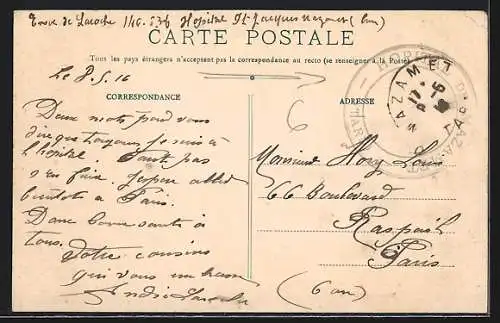 Hopital St Jacques Mazamet (Tarn)
CARTE POSTALE
Tous les pays étrangers n'acceptent pas la correspondance au recto (se renseigner à la Poste)
Le 8.5.16
CORRESPONDANCE
ADRESSE
HOPITAL
MAZAMET
TARN
6
Deux mots pour vous
dire que toujours je suis à
l'hôpital. faut pas
s'en faire. J'espère aller
bientôt à Paris.
Donc bonne santé à
tous.
Votre cousin
qui vous embrasse
André
Monsieur Louis
66 Boulevard
Raspail
Paris
(6 arr)